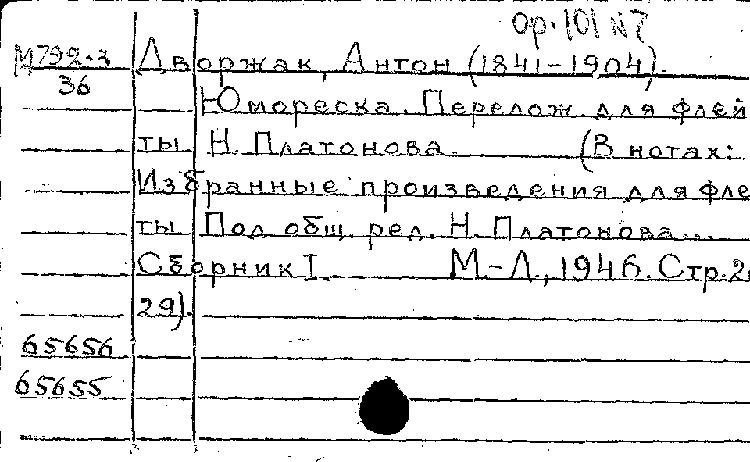 op. 101 №7
М792.3 Дворжак, Антон (1841-1904).
36
Юмореска. Перелож. для флей
ты Н. Платонова. (В нотах:
Избранные произведения для фле
ты Под общ. ред. Н. Платонова...
Сборник I. М-Л, 1946. Стр. 2
29).
65656
65655